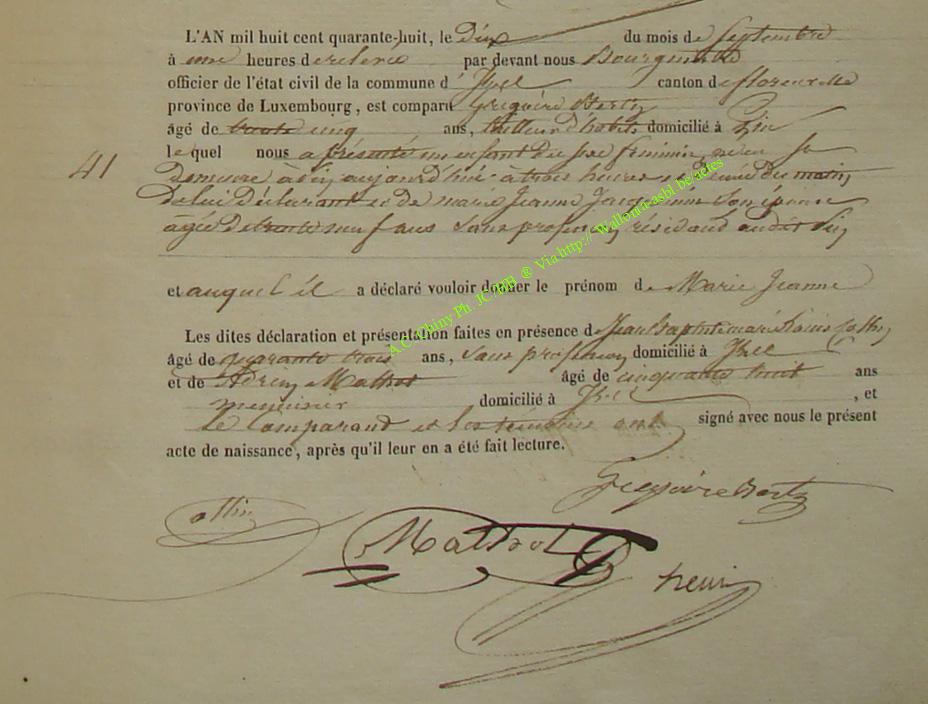 L'AN mil huit cent quarante-huit, le dix du mois de Septembre
à une heures de relevée par devant nous Bourgmestre
officier de l'état civil de la commune d' Izel canton de florenville
province de Luxembourg, est comparu Grégoire Bertz
âgé de trente cinq ans, tailleur d'habits domicilié à Pin
le quel nous a présenté un enfant du sexe féminin, né en sa
41
demeure à Pin aujourd'hui à trois heures du matin,
de lui Déclarant et de marie Jeanne son épouse
agée de trente neuf ans sans profession, résidant audit Pin,
et auquel il a déclaré vouloir donner le prénom de Marie Jeanne
Les dites déclaration et présentation faites en présence de Jean baptiste marie Louis
âgé de quarante trois ans, sans profession, domicilié à Izel
et de Adrien Mathot âgé de cinquante huit ans
menuisier domicilié à Izel, et
Le Comparant et les témoins ont signé avec nous le présent
acte de naissance, après qu'il leur en a été fait lecture.
Grégoire Bertz
Mathot
henri
A.C. Chiny Ph. JC.HBB ® Via http:// Wallonia-asbl be actes